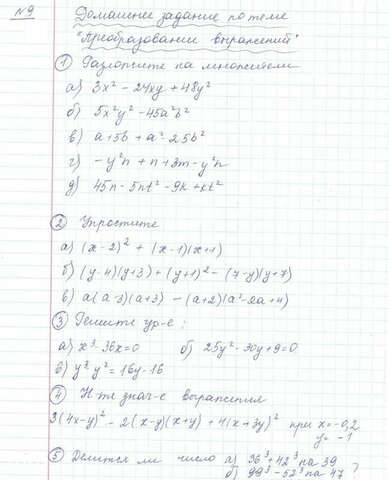 №9
Домашнее задание по теме
"Преобразовании выражений"
① Разложите на множители
а) 3x² - 24xy + 48y²
б) 5x²y² - 45a²b²
в) a + 5b + a² - 25b²
г) - y²n + n + 3m - y²n
д) 45n - 5nt² - 9k + kt²
② Упростите
а) (x - 2)² + (x - 1)(x + 1)
б) (y - 4)(y + 3) + (y + 1)² - (7 - y)(y + 7)
в) a(a - 3)(a + 3) - (a + 2)(a² - 2a + 4)
③ Решите ур-е:
а) x³ - 36x = 0 б) 25y² - 30y + 9 = 0
в) y³ y² = 16y - 16
④ Н-те знач-е выражения
3(4x - y)² - 2(x - y)(x + y) + 4(x + 3y)² при x = -0,2
y = -1
⑤ Делится ли число а) 36³ + 42³ на 39
б) 99³ - 52³ на 47 ?